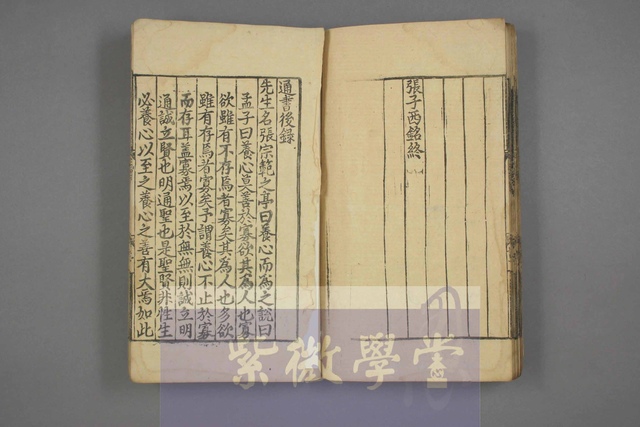 張子西銘終
通書後錄
先生名張宗範之亭曰養心而為之說曰
孟子曰養心莫善於寡欲其為人也寡
欲雖有不存焉者寡矣其為人也多欲
雖有存焉者寡矣予謂養心不止於寡
而存耳盖寡焉以至於無無則誠立明
通誠立賢也明通聖也是聖賢非性生
必養心以至之養心之善有大焉如此
紫微學堂